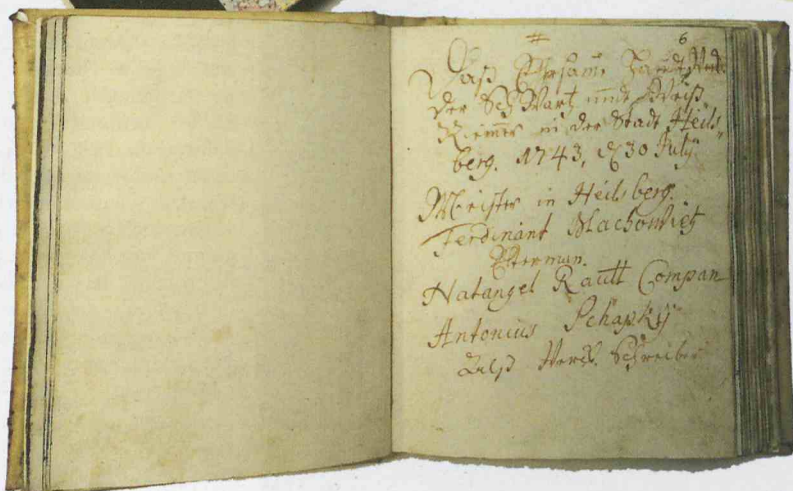 6
Daß Ehrsame Handt Werk
der Schwartz unndt Weiß
Riemer in der Stadt Heils-
berg. 1743, d 30 July
Meister in Heilsberg.
Ferdinant
Elterman.
Natangel Rautt Compan
Antonius Schapkÿ
Alß Werck. Schreiber